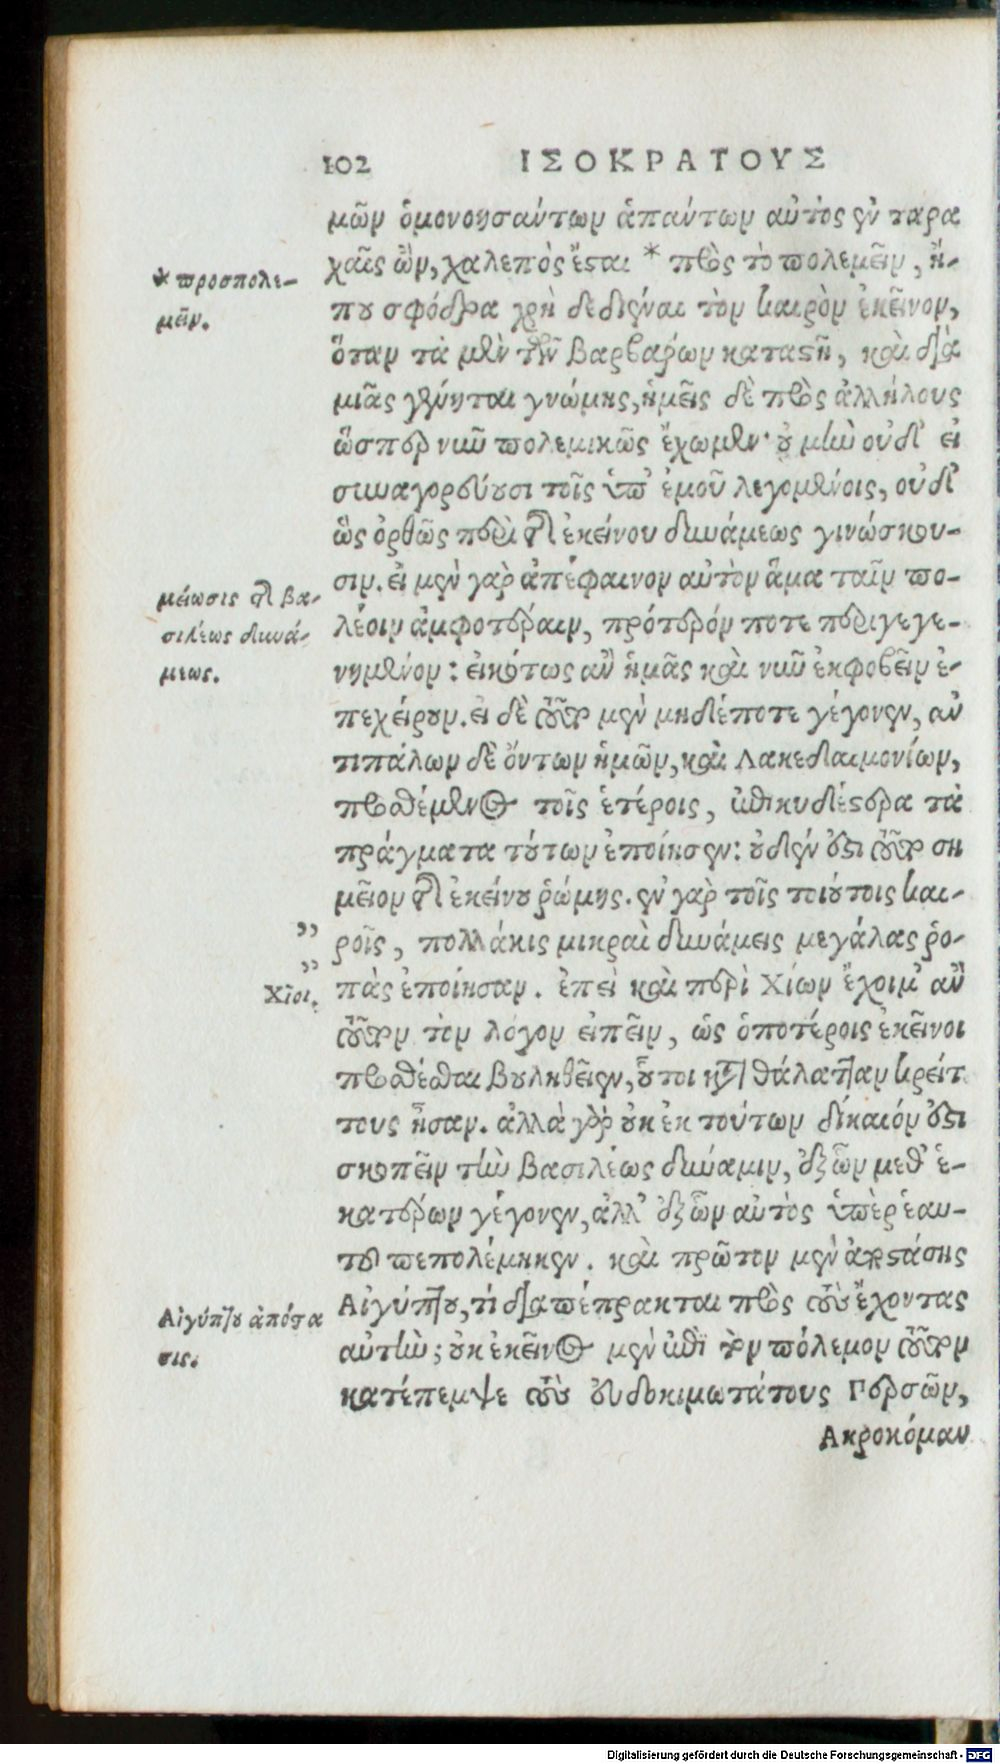 102 ΙΣΟΚΡΑΤΟΥΣ
μῶν ὁμονοησάντων ἁπάντων αὐτὸς ἐν ταρα
χαῖς ὢν, χαλεπὸς ἔσται * πρὸς τὸ πολεμεῖν, ἤ-
* προσπολε-
μεῖν.
που σφόδρα χρὴ δεδιέναι τὸν καιρὸν ἐκεῖνον,
ὅταν τὰ μὲν τῶν βαρβάρων καταστῇ, καὶ διὰ
μιᾶς γένηται γνώμης, ἡμεῖς δὲ πρὸς ἀλλήλους
ὥσπερ νῦν πολεμικῶς ἔχωμεν· οὐ μὴν οὐδ' εἰ
συναγορεύουσι τοῖς ὑπ' ἐμοῦ λεγομένοις, οὐδ'
ὣς ὀρθῶς περὶ τῆς ἐκείνου δυνάμεως γινώσκου-
σιν. εἰ μὲν γὰρ ἀπέφαινον αὐτὸν ἅμα ταῖν πο-
μείωσις τῆς βα-
σιλέως δυνά-
μεως.
λέοιν ἀμφοτέραιν, πρότερόν ποτε περιγεγε-
νημένον: εἰκότως ἂν ἡμᾶς καὶ νῦν ἐκφοβεῖν ἐ-
πεχείρουν. εἰ δὲ τοῦτο μὲν μηδέποτε γέγονεν, ἀν
τιπάλων δὲ ὄντων ἡμῶν, καὶ Λακεδαιμονίων,
προσθέμενος τοῖς ἑτέροις, ἐπικυδέστερα τὰ
πράγματα τούτων ἐποίησεν: οὐδέν ἐστι τοῦτο ση
μεῖον τῆς ἐκείνου ῥώμης. ἐν γὰρ τοῖς τοιούτοις και-
” ροῖς, πολλάκις μικραὶ δυνάμεις μεγάλας ῥο-
”
Χῖοι.
πὰς ἐποίησαν. ἐπεὶ καὶ περὶ Χίων ἔχοιμ' ἂν
τοῦτον τὸν λόγον εἰπεῖν, ὡς ὁποτέροις ἐκεῖνοι
προσθέσθαι βουληθεῖεν, οὗτοι κατὰ θάλατταν κρείτ
τους ἦσαν. ἀλλὰ γὰρ οὐκ ἐκ τούτων δίκαιόν ἐστι
σκοπεῖν τὴν βασιλέως δύναμιν, ἐξ ὧν μεθ' ἑ-
κατέρων γέγονεν, ἀλλ' ἐξ ὧν αὐτὸς ὑπὲρ ἑαυ-
τοῦ πεπολέμηκεν. καὶ πρῶτον μὲν ἀποστάσης
Αἰγύπτου ἀπόστα
σις.
Αἰγύπτου, τί διαπέπρακται πρὸς τοὺς ἔχοντας
αὐτήν; οὐκ ἐκεῖνος μὲν ἐπὶ τὸν πόλεμον τοῦτον
κατέπεμψε τοὺς εὐδοκιμωτάτους Περσῶν,
Ακροκόμαν
Digitalisierung gefördert durch die Deutsche Forschungsgemeinschaft - DFG